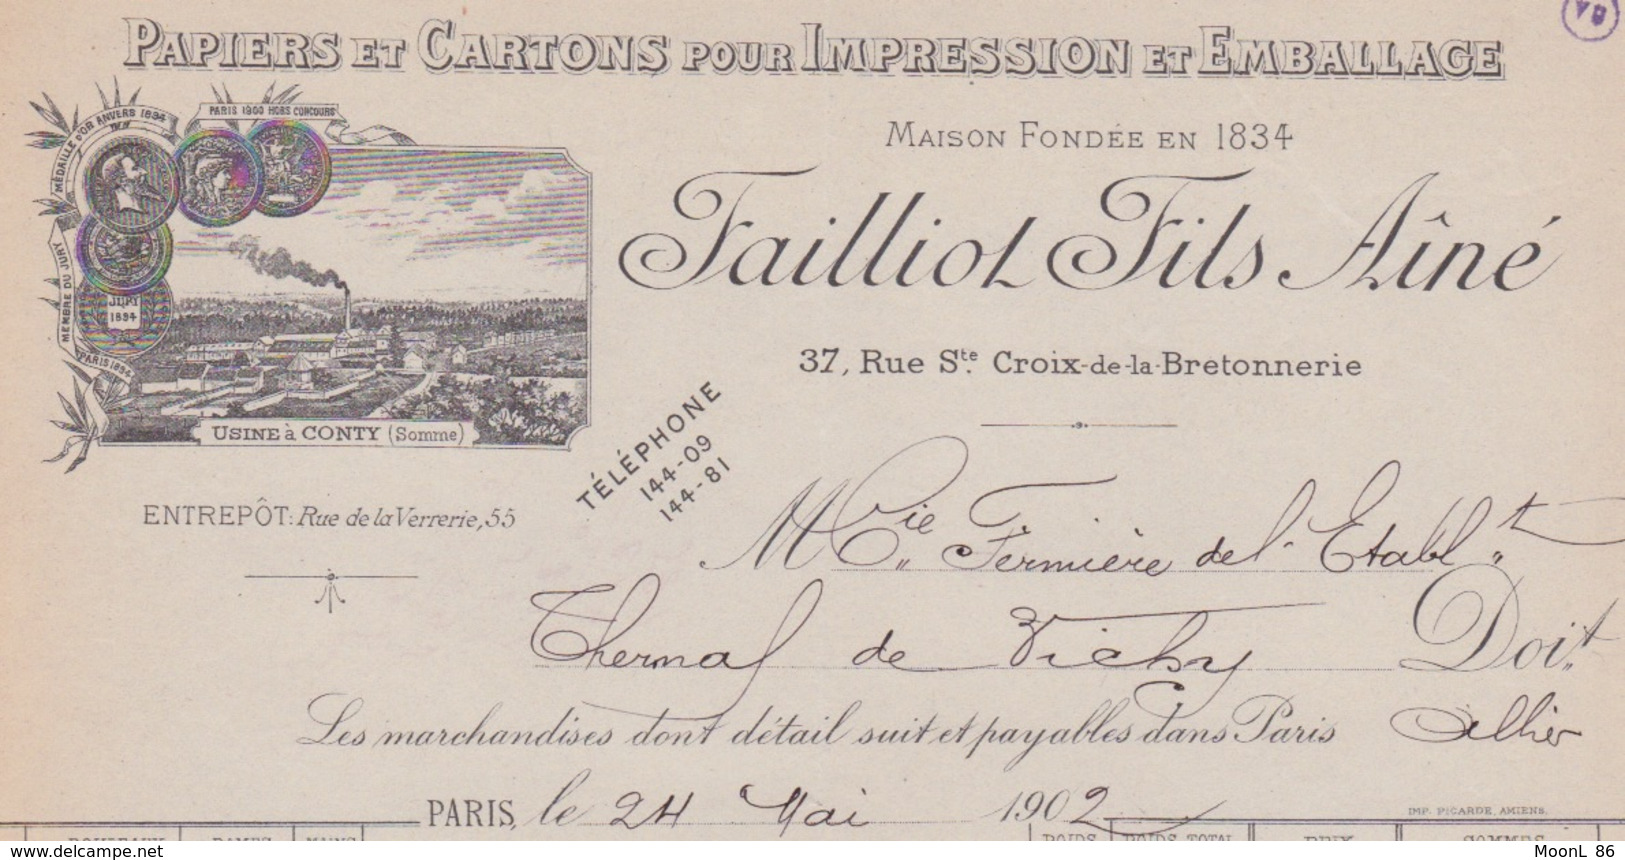 PAPIERS ET CARTONS POUR IMPRESSION ET EMBALLAGE
MAISON FONDÉE EN 1834
Failliot Fils Aîné
37, Rue Ste. Croix-de-la-Bretonnerie
MÉDAILLE D'OR ANVERS 1894
PARIS 1900 HORS CONCOURS
MEMBRE DU JURY
PARIS 1894
JURY
1894
USINE à CONTY (Somme)
TÉLÉPHONE
144-09
144-81
ENTREPÔT: Rue de la Verrerie, 55
M Cie Fermière de l'Etablt
Thermal de Vichy Doit
Allier
Les marchandises dont détail suit et payables dans Paris
PARIS, le 24 Mai 1902
IMP. PICARDE, AMIENS.
ROULEAUX RAMES MAINS POIDS POIDS TOTAL PRIX SOMMES
MoonL 86
www.delcampe.net